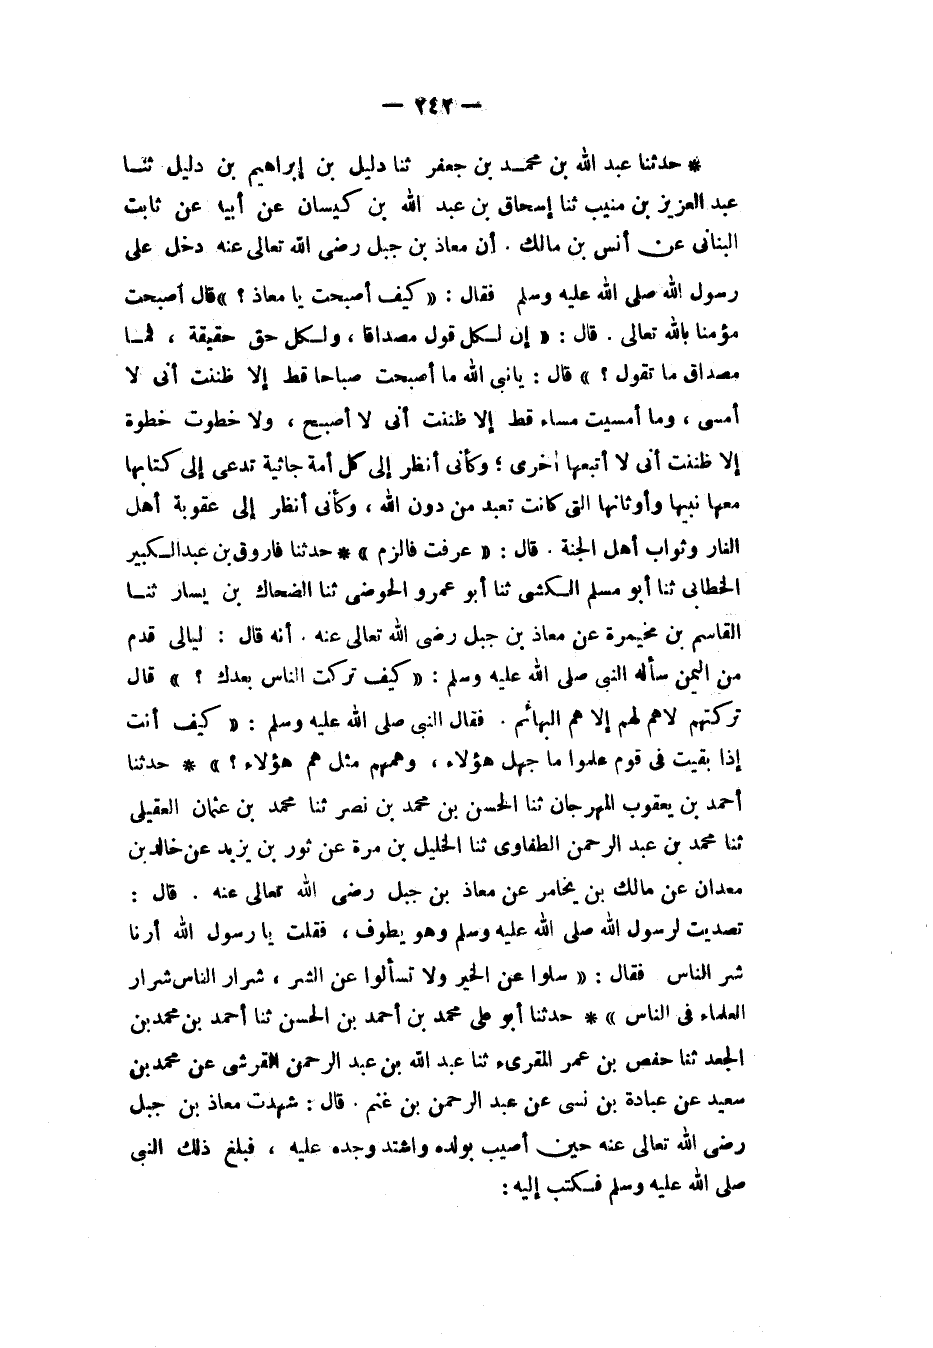 — ٢٤٢ —
* حدثنا عبد الله بن محمد بن جعفر ثنا دليل بن إبراهيم بن دليل ثنا
عبد العزيز بن منيب ثنا إسحاق بن عبد الله بن كيسان عن أبيه عن ثابت
البنانى عن أنس بن مالك . أن معاذ بن جبل رضى الله تعالى عنه دخل على
رسول الله صلى الله عليه وسلم فقال : « كيف أصبحت يا معاذ ؟ » قال أصبحت
مؤمنا بالله تعالى . قال : « إن لكل قول مصداقا ، ولكل حق حقيقة ، فما
مصداق ما تقول ؟ » قال : يانبى الله ما أصبحت صباحا قط إلا ظننت أنى لا
أمسى ، وما أمسيت مساء قط إلا ظننت أنى لا أصبح ، ولا خطوت خطوة
إلا ظننت أنى لا أتبعها أخرى ؛ وكأنى أنظر إلى كل أمة جاثية تدعى إلى كتابها
معها نبيها وأوثانها التى كانت تعبد من دون الله ، وكأنى أنظر إلى عقوبة أهل
النار وثواب أهل الجنة . قال : « عرفت فالزم » * حدثنا فاروق بن عبد الكبير
الخطابى ثنا أبو مسلم الكشى ثنا أبو عمرو الحوضى ثنا الضحاك بن يسار ثنا
القاسم بن مخيمرة عن معاذ بن جبل رضى الله تعالى عنه . أنه قال : ليالى قدم
من اليمن سأله النبى صلى الله عليه وسلم : « كيف تركت الناس بعدك ؟ » قال
تركتهم لاهم لهم إلا هم البهائم . فقال النبى صلى الله عليه وسلم : « كيف أنت
إذا بقيت فى قوم علموا ما جهل هؤلاء ، وهمهم مثل هم هؤلاء ؟ » * حدثنا
أحمد بن يعقوب المهرجان ثنا الحسن بن محمد بن نصر ثنا محمد بن عثمان العقيلى
ثنا محمد بن عبد الرحمن الطفاوى ثنا الخليل بن مرة عن ثور بن يزيد عن خالد بن
معدان عن مالك بن يخامر عن معاذ بن جبل رضى الله تعالى عنه . قال :
تصديت لرسول الله صلى الله عليه وسلم وهو يطوف ، فقلت يا رسول الله أرنا
شر الناس فقال : « سلوا عن الخير ولا تسألوا عن الشر ، شرار الناس شرار
العلماء فى الناس » * حدثنا أبو على محمد بن أحمد بن الحسن ثنا أحمد بن محمد بن
الجعد ثنا حفص بن عمر المقرىء ثنا عبد الله بن عبد الرحمن القرشى عن محمد بن
سعيد عن عبادة بن نسى عن عبد الرحمن بن غنم . قال : شهدت معاذ بن جبل
رضى الله تعالى عنه حين أصيب بولده واشتد وجده عليه ، فبلغ ذلك النبى
صلى الله عليه وسلم فكتب إليه :